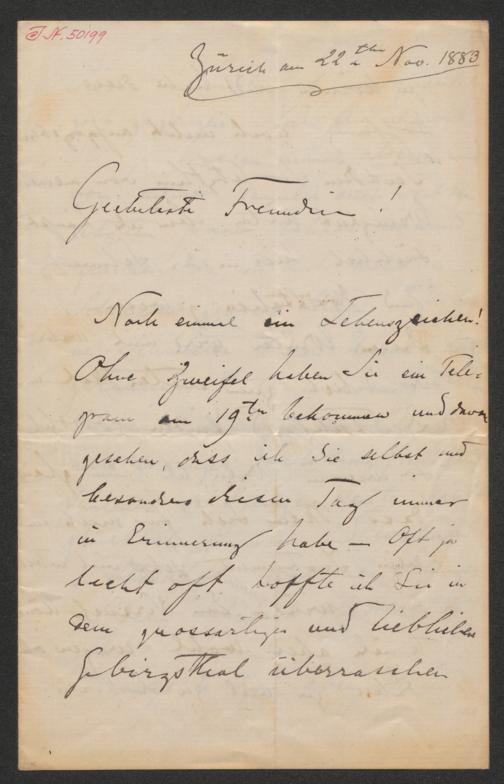 J.N. 50199
Zürich am 22ten Nov. 1883
Geehrteste Freundin!
Noch einmal ein Lebenszeichen!
Ohne Zweifel haben Sie ein Tele-
gram am 19ten bekommen und davon
gesehen, dass ich Sie selbst und
besonders diesen Tag immer
in Erinnerung habe — Oft ja
recht oft hoffte ich Sie in
dem grossartigen und lieblichen
Gebirgsthal überraschen